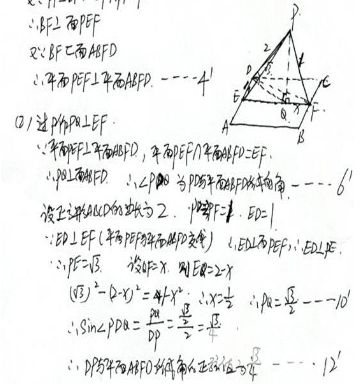 ∴BF⊥面PEF
又∵BF⊂面ABFD
∴平面PEF⊥平面ABFD. -----4'
(2) 过P作PQ⊥EF.
∵平面PEF⊥平面ABFD, 平面PEF∩平面ABFD=EF.
∴PQ⊥面ABFD. ∴∠PDQ为PD与平面ABFD所成的角 ---- 6'
设正方形ABCD的边长为2. PF=1. ED=1
∵ED⊥EF ∴ED⊥面PEF, ∴ED⊥PE.
∴PE=√3. 设QF=x. 则EQ=2-x
(√3)²-(2-x)²=1-x² ∴x=1/2 ∴PQ=√3/2 ---10'
∴sin∠PDQ=PQ/DP=(√3/2)/2=√3/4
∴DP与平面ABFD所成角的正弦值为√3/4 ---- 12'
P
2
1
D
C
E
Q
x
F
A
B